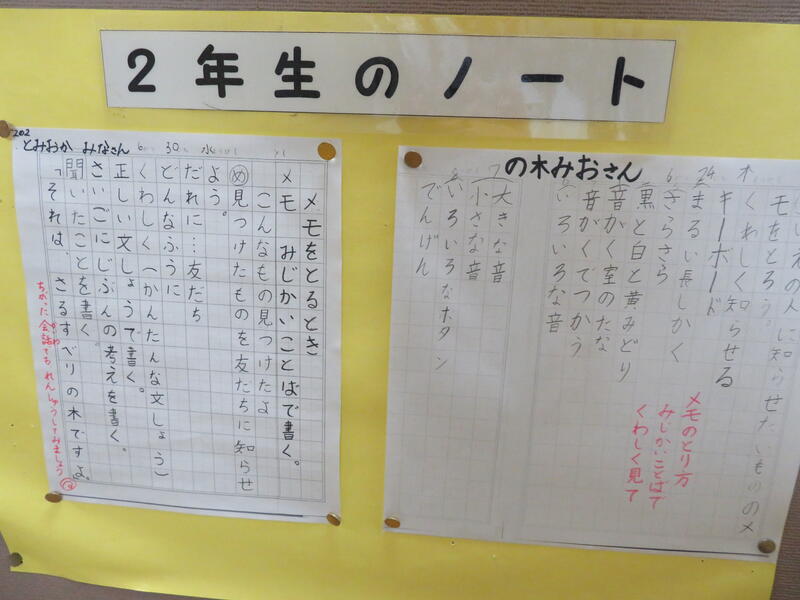 2年生のノート
202
とみおか みなさん 6 30 水
メモをとるとき
メモ みじかいことばで書く。
こんなもの見つけたよ
め見つけたものを友だちに知らせ
よう。
だれに…友だち
どんなふうに
くわしく(かんたんな文しょう)
正しい文しょうで書く。
さいごにじぶんの考えを書く。
聞いたことを書く。
「それは、さるすべりの木ですよ。
ちがった会話でも れんしゅうしてみましょう
の木みおさん
6 24 木
に知らせたいもののメ
モをとろう
くわしく知らせる
キーボード
まるい長しかく
さらさら
黒と白と黄みどり
音がく室のたな
音がくでつかう
いろいろな音
大きな音
小さな音
いろいろなボタン
でんげん
メモのとり方
みじかいことばで
くわしく見て